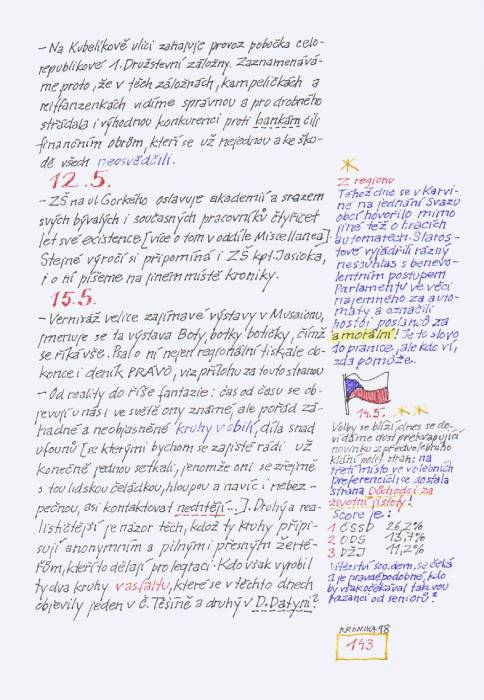 – Na Kubelíkově ulici zahajuje provoz pobočka celo-
republikové 1. Družstevní záložny. Zaznamenává-
me proto, že v těch záložnách, kampeličkách a
reiffanzenkách vidíme správnou a pro drobného
střádala i výhodnou konkurenci proti bankám čili
finančním obrům, kteří se už nejednou a ke ško-
dě všech neosvědčili.
12.5.
– ZŠ na ul. Gorkého oslavuje akademií a srazem
svých bývalých i současných pracovníků čtyřicet
let své existence [více o tom v oddíle Miscellanea].
Stejné výročí si připomíná i ZŠ kpt. Jasioka,
i o ní píšeme na jiném místě kroniky.
15.5.
– Vernisáž velice zajímavé výstavy v Musaionu,
jmenuje se ta výstava Boty, botky botičky, čímž
se říká vše. Psal o ní nejen regionální tisk ale do-
konce i deník PRÁVO, viz přílohu za touto stranou
– Od reality do říše fantazie: čas od času se ob-
jevují u nás i ve světě ony známé, ale pořád zá-
hadné a neobjasněné kruhy v obilí, díla snad
ufounů [se kterými bychom se zajisté rádi už
konečně jednou setkali, jenomže oni se zřejmě
s tou lidskou čeládkou, hloupou a navíc i nebez-
pečnou, asi kontaktovat nechtějí...]. Druhý a rea-
lističtější je názor těch, kdož ty kruhy připi-
sují anonymním a pilným i přesným žerté-
řům, kteří to dělají pro legraci. Kdo však vyrobil
ty dva kruhy v asfaltu, které se v těchto dnech
objevily jeden v Č. Těšíně a druhý v D. Datyni?
Z regionu
Téhož dne se v Karvi-
né na jednání Svazu
obcí hovořilo mimo
jiné též o hracích
automatech. Staros-
tové vyjádřili rázný
nesouhlas s benevo-
lentním postupem
Parlamentu ve věci
nájemného za auto-
maty a označili
postoj poslanců za
amorální! Je to slovo
do pranice, ale kdo ví,
zda pomůže.
14.5.
Volby se blíží, dnes se do-
vídáme dost překvapující
novinku z předvolebního
klání polit. stran: na
třetí místo ve volebních
preferencích se dostala
strana Důchodci za
životní jistoty!
Score je:
1 ČSSD 26,2%
2 ODS 13,7%
3 DŽJ 11,2%
Vítězství soc. dem. se čeká
a je pravděpodobné, kdo
by však očekával takovou
razanci od seniorů?
KRONIKA 98
143